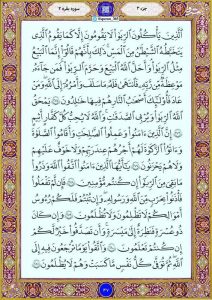 جزء ۳
سوره بقره ۲
ٱلَّذِينَ يَأۡكُلُونَ ٱلرِّبَوٰاْ لَا يَقُومُونَ إِلَّا كَمَا يَقُومُ ٱلَّذِي
يَتَخَبَّطُهُ ٱلشَّيۡطَٰنُ مِنَ ٱلۡمَسِّۚ ذَٰلِكَ بِأَنَّهُمۡ قَالُوٓاْ إِنَّمَا ٱلۡبَيۡعُ
مِثۡلُ ٱلرِّبَوٰاْۗ وَأَحَلَّ ٱللَّهُ ٱلۡبَيۡعَ وَحَرَّمَ ٱلرِّبَوٰاْۚ فَمَن جَآءَهُۥ
مَوۡعِظَةٞ مِّن رَّبِّهِۦ فَٱنتَهَىٰ فَلَهُۥ مَا سَلَفَ وَأَمۡرُهُۥٓ إِلَى ٱللَّهِۖ وَمَنۡ
عَادَ فَأُوْلَٰٓئِكَ أَصۡحَٰبُ ٱلنَّارِۖ هُمۡ فِيهَا خَٰلِدُونَ يَمۡحَقُ
ٱللَّهُ ٱلرِّبَوٰاْ وَيُرۡبِي ٱلصَّدَقَٰتِۗ وَٱللَّهُ لَا يُحِبُّ كُلَّ كَفَّارٍ أَثِيمٍ
إِنَّ ٱلَّذِينَ ءَامَنُواْ وَعَمِلُواْ ٱلصَّٰلِحَٰتِ وَأَقَامُواْ ٱلصَّلَوٰةَ
وَءَاتَوُاْ ٱلزَّكَوٰةَ لَهُمۡ أَجۡرُهُمۡ عِندَ رَبِّهِمۡ وَلَا خَوۡفٌ عَلَيۡهِمۡ
وَلَا هُمۡ يَحۡزَنُونَ يَٰٓأَيُّهَا ٱلَّذِينَ ءَامَنُواْ ٱتَّقُواْ ٱللَّهَ وَذَرُواْ
مَا بَقِيَ مِنَ ٱلرِّبَوٰٓاْ إِن كُنتُم مُّؤۡمِنِينَ فَإِن لَّمۡ تَفۡعَلُواْ
فَأۡذَنُواْ بِحَرۡبٖ مِّنَ ٱللَّهِ وَرَسُولِهِۦۖ وَإِن تُبۡتُمۡ فَلَكُمۡ رُءُوسُ
أَمۡوَٰلِكُمۡ لَا تَظۡلِمُونَ وَلَا تُظۡلَمُونَ وَإِن كَانَ
ذُو عُسۡرَةٖ فَنَظِرَةٌ إِلَىٰ مَيۡسَرَةٖۚ وَأَن تَصَدَّقُواْ خَيۡرٞ لَّكُمۡ
إِن كُنتُمۡ تَعۡلَمُونَ وَٱتَّقُواْ يَوۡمٗا تُرۡجَعُونَ فِيهِ إِلَى
ٱللَّهِۖ ثُمَّ تُوَفَّىٰ كُلُّ نَفۡسٖ مَّا كَسَبَتۡ وَهُمۡ لَا يُظۡلَمُونَ
۴۷